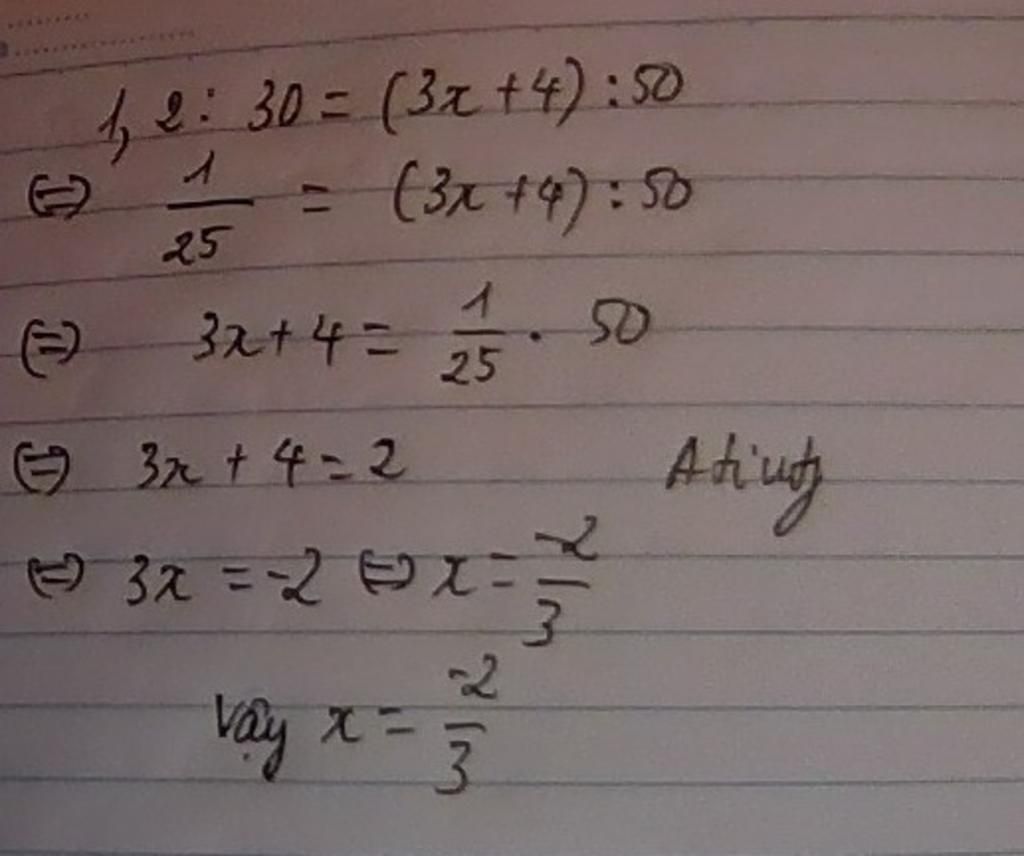 1,2 : 30 = (3x + 4) : 50
⇔ 1/25 = (3x + 4) : 50
⇔ 3x + 4 = 1/25 . 50
⇔ 3x + 4 = 2
⇔ 3x = -2 ⇔ x = -2/3
Vậy x = -2/3